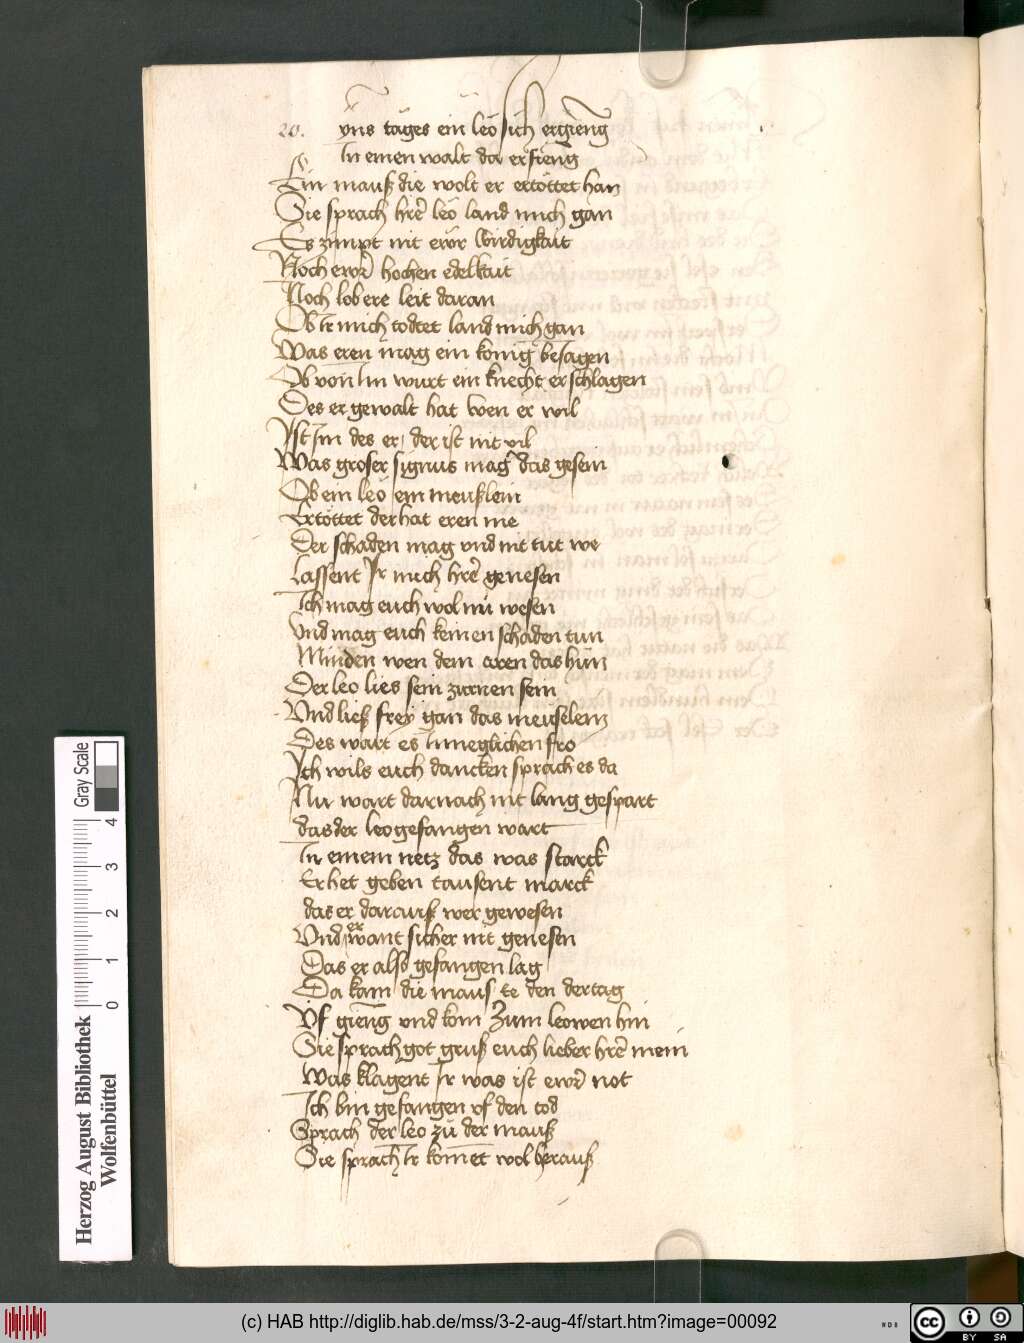 20. ÿns tages ein leo sich ergieng
In einen walt da er fieng
Ein mauß die wolt er ertöttet han
Sie sprach h're leo land mich gan
Es zimpt nit ewr wirdigkait
Noch ewr hochen edelkait
Noch lob ere leit daran
Ob Ir mich todtet land mich gan
Was eren mag ein konig besagen
Ob von Im wurt ein knecht erschlagen
Des er gewalt hat wen er wil
Ist Im des er der ist nit vil
Was groser signus mag das gesein
Ob ein leo ein meußlein
Ertöttet der hat eren nie
Der schaden mag vnd nit tut we
Lassent Ir mich h're genesen
Ich mag euch wol nü wesen
Vnd mag euch keinen schaden tun
Minden wen dem aren das hün
Der leo lies sein zurnen sein
Vnd ließ frey gan das meuselein
Des wart es Inneglichen fro
Ich wils euch dancken sprach es da
Nu wart darnach nit lang gespart
das der leo gefangen wart
In einem netz das was starck
Er het geben tausent marck
das er darauß wer gewesen
Vnd er want sicher nit genesen
Das er also gefangen lag
Da kam die maus ee den der tag
Vf gieng vnd kom Zum leowen hin
Sie sprach got gruß euch lieber h're mein
Was klagent Ir was ist ewr not
Ich bin gefangen vf den tod
Sprach der leo zü der mauß
Sie sprach Ir komet wol herauß
Herzog August Bibliothek
Wolfenbüttel
0 1 2 3 4
Gray Scale
(c) HAB http://diglib.hab.de/mss/3-2-aug-4f/start.htm?image=00092
cc BY SA